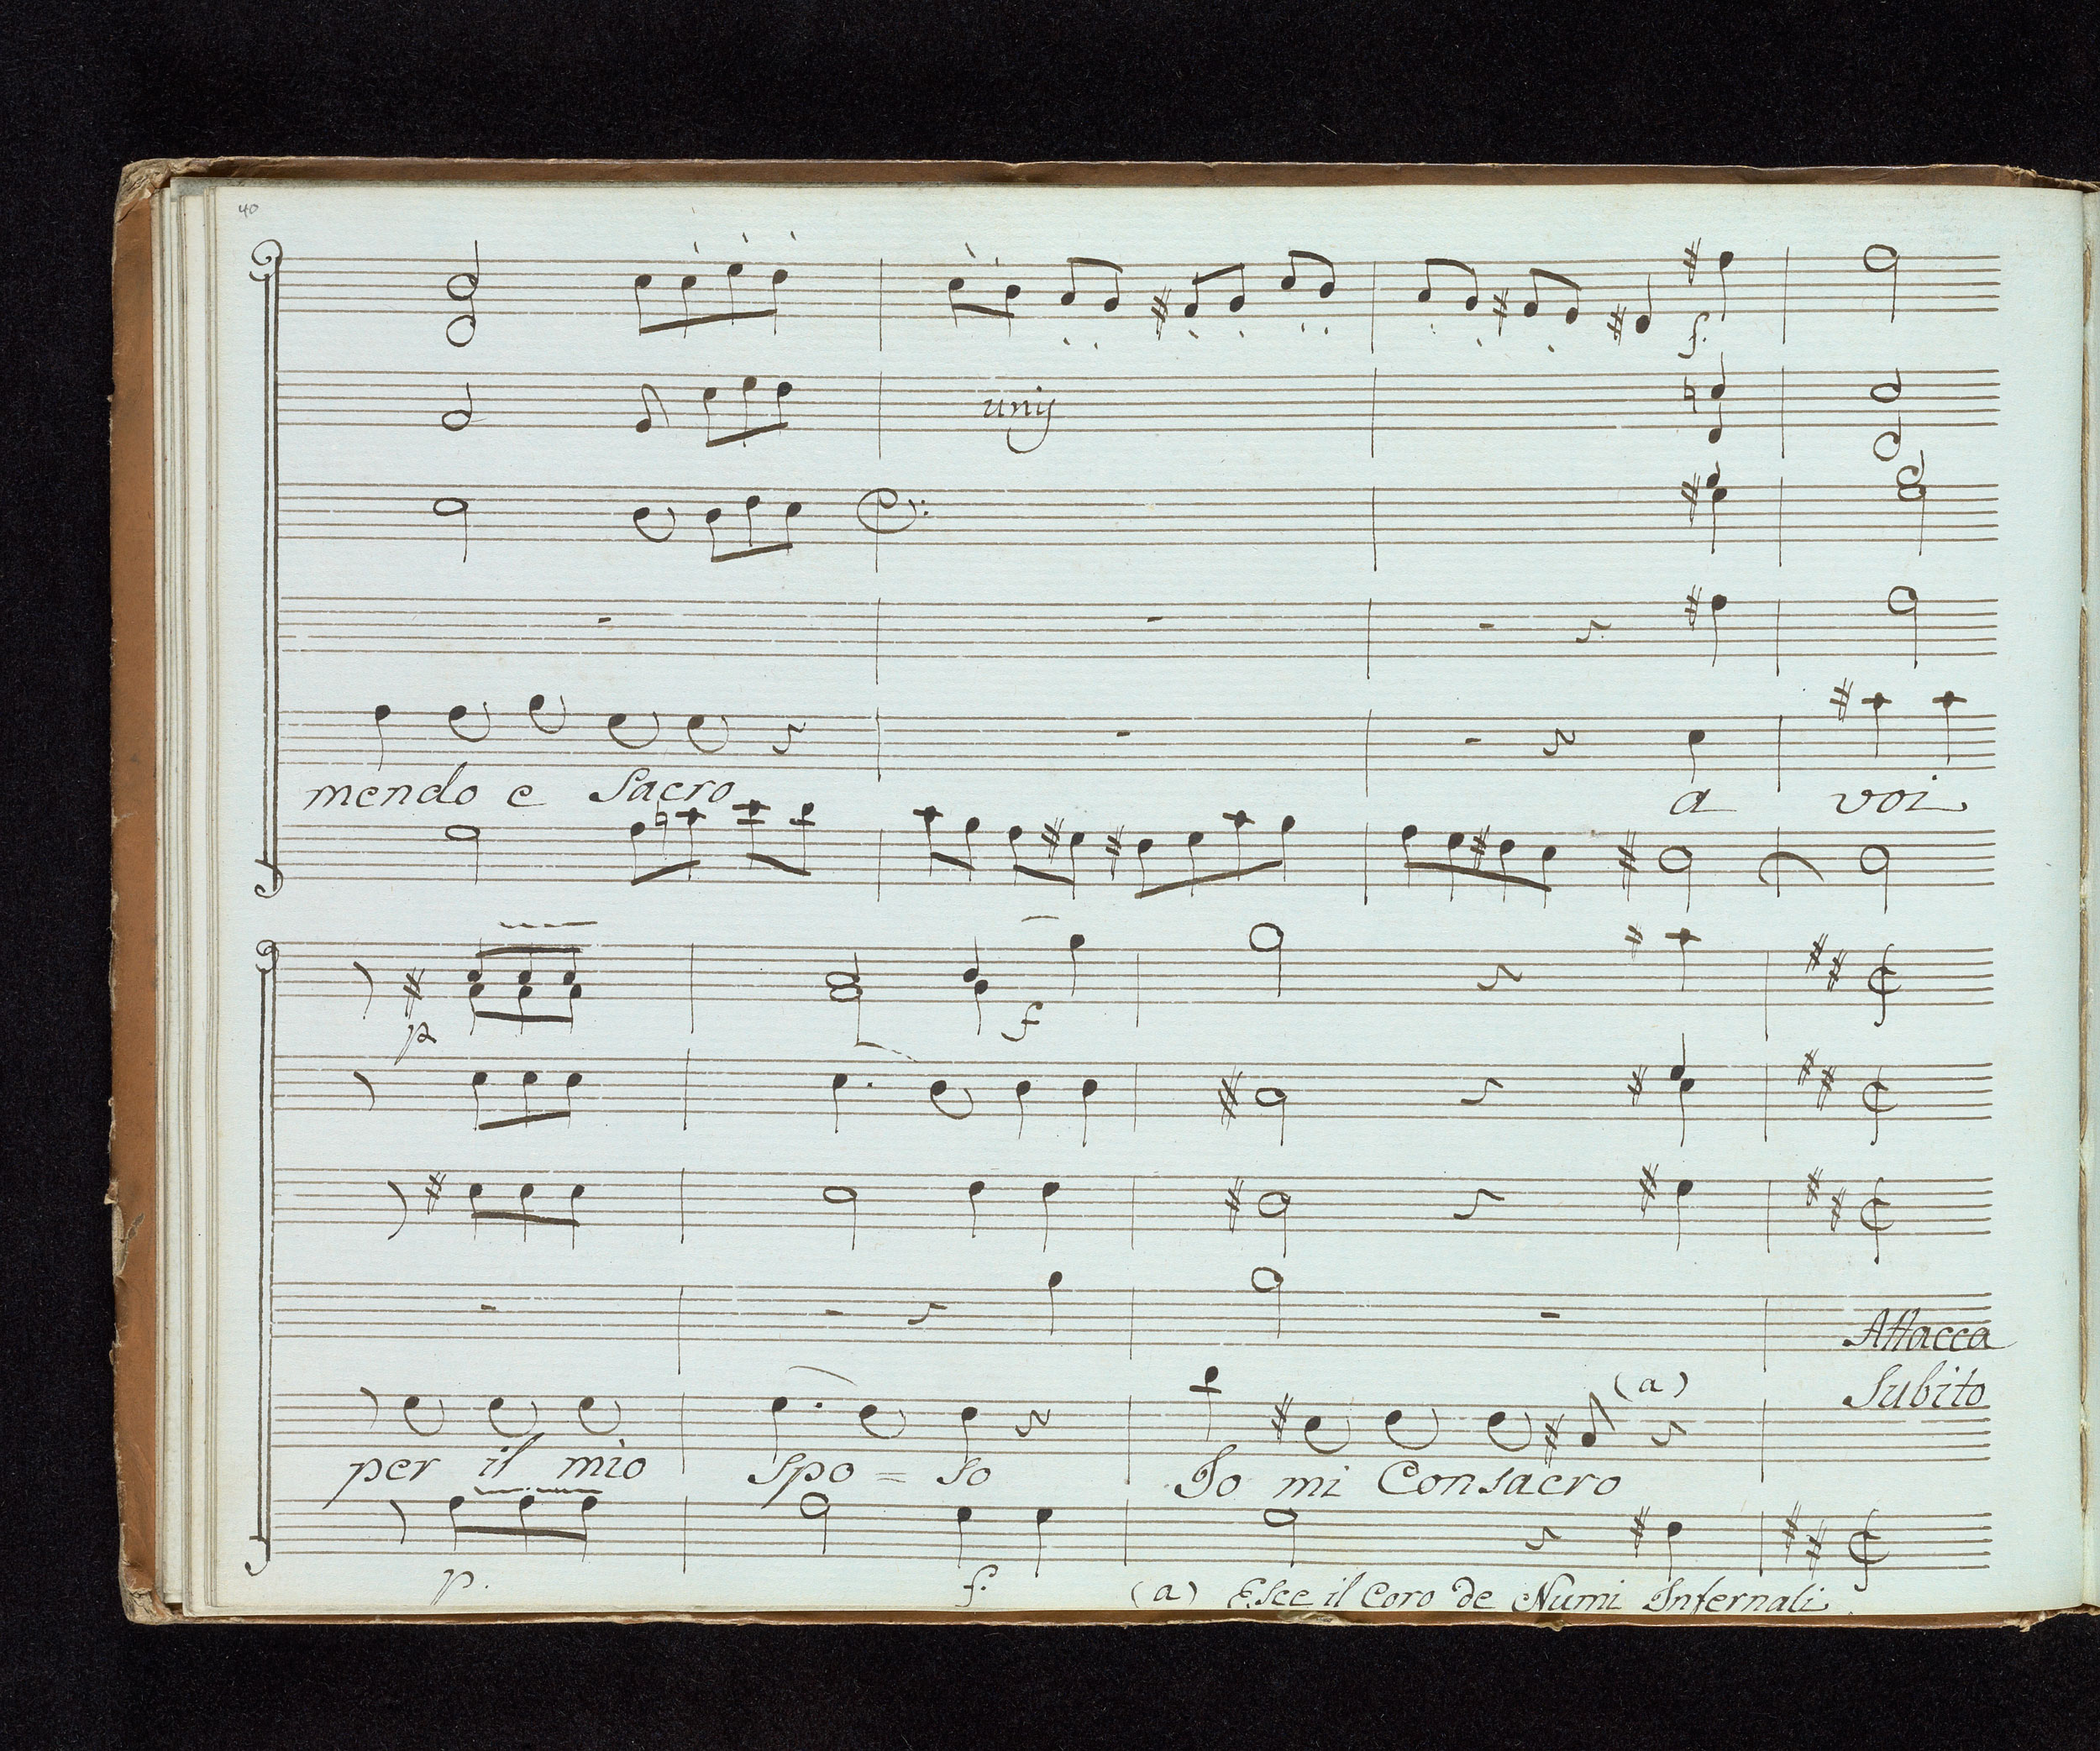 40
f.
unis
mendo e Sacro a voi
p f
Attacca
Subito
(a)
per il mio spo = so Io mi Consacro
p. f. (a) Esce il Coro de Numi Infernali